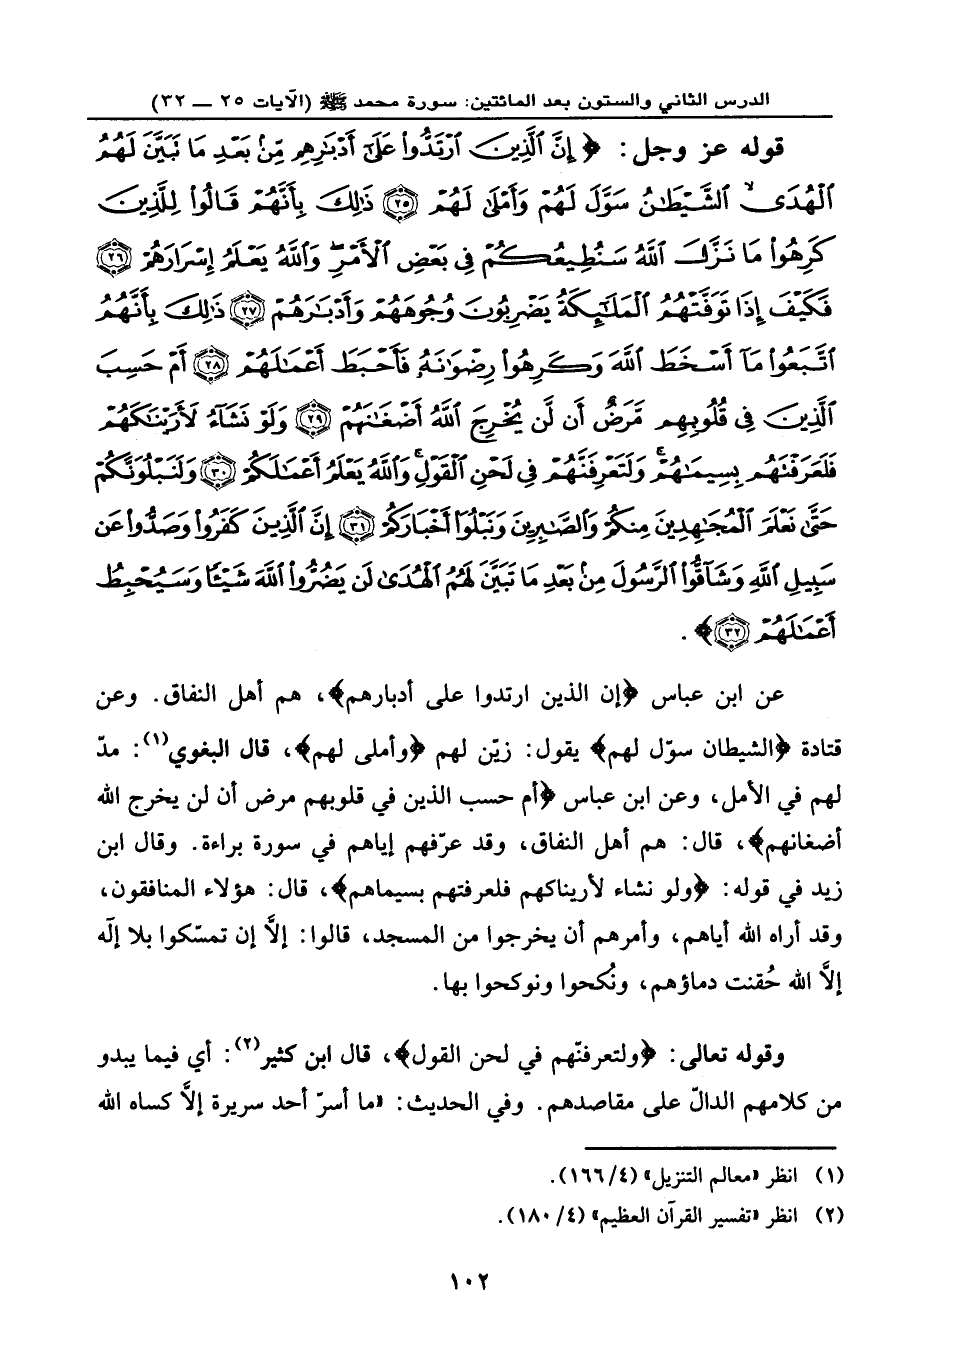 الدرس الثاني والستون بعد المائتين: سورة محمد ﷺ (الآيات ٢٥ — ٣٢)
قوله عز وجل: ﴿ إِنَّ ٱلَّذِينَ ٱرْتَدُّوا۟ عَلَىٰٓ أَدْبَٰرِهِم مِّنۢ بَعْدِ مَا تَبَيَّنَ لَهُمُ
ٱلْهُدَى ۙ ٱلشَّيْطَٰنُ سَوَّلَ لَهُمْ وَأَمْلَىٰ لَهُمْ ﴿٢٥﴾ ذَٰلِكَ بِأَنَّهُمْ قَالُوا۟ لِلَّذِينَ
كَرِهُوا۟ مَا نَزَّلَ ٱللَّهُ سَنُطِيعُكُمْ فِى بَعْضِ ٱلْأَمْرِ ۖ وَٱللَّهُ يَعْلَمُ إِسْرَارَهُمْ ﴿٢٦﴾
فَكَيْفَ إِذَا تَوَفَّتْهُمُ ٱلْمَلَٰٓئِكَةُ يَضْرِبُونَ وُجُوهَهُمْ وَأَدْبَٰرَهُمْ ﴿٢٧﴾ ذَٰلِكَ بِأَنَّهُمُ
ٱتَّبَعُوا۟ مَآ أَسْخَطَ ٱللَّهَ وَكَرِهُوا۟ رِضْوَٰنَهُۥ فَأَحْبَطَ أَعْمَٰلَهُمْ ﴿٢٨﴾ أَمْ حَسِبَ
ٱلَّذِينَ فِى قُلُوبِهِم مَّرَضٌ أَن لَّن يُخْرِجَ ٱللَّهُ أَضْغَٰنَهُمْ ﴿٢٩﴾ وَلَوْ نَشَآءُ لَأَرَيْنَٰكَهُمْ
فَلَعَرَفْتَهُم بِسِيمَٰهُمْ ۚ وَلَتَعْرِفَنَّهُمْ فِى لَحْنِ ٱلْقَوْلِ ۚ وَٱللَّهُ يَعْلَمُ أَعْمَٰلَكُمْ ﴿٣٠﴾ وَلَنَبْلُوَنَّكُمْ
حَتَّىٰ نَعْلَمَ ٱلْمُجَٰهِدِينَ مِنكُمْ وَٱلصَّٰبِرِينَ وَنَبْلُوَا۟ أَخْبَارَكُمْ ﴿٣١﴾ إِنَّ ٱلَّذِينَ كَفَرُوا۟ وَصَدُّوا۟ عَن
سَبِيلِ ٱللَّهِ وَشَآقُّوا۟ ٱلرَّسُولَ مِنۢ بَعْدِ مَا تَبَيَّنَ لَهُمُ ٱلْهُدَىٰ لَن يَضُرُّوا۟ ٱللَّهَ شَيْـًٔا وَسَيُحْبِطُ
أَعْمَٰلَهُمْ ﴿٣٢﴾ ﴾ .
عن ابن عباس ﴿إن الذين ارتدوا على أدبارهم﴾، هم أهل النفاق. وعن
قتادة ﴿الشيطان سوّل لهم﴾ يقول: زيّن لهم ﴿وأملى لهم﴾، قال البغوي(١): مدّ
لهم في الأمل، وعن ابن عباس ﴿أم حسب الذين في قلوبهم مرض أن لن يخرج الله
أضغانهم﴾، قال: هم أهل النفاق، وقد عرّفهم إياهم في سورة براءة. وقال ابن
زيد في قوله: ﴿ولو نشاء لأريناكهم فلعرفتهم بسيماهم﴾، قال: هؤلاء المنافقون،
وقد أراه الله أياهم، وأمرهم أن يخرجوا من المسجد، قالوا: إلاَّ إن تمسّكوا بلا إلٰه
إلاَّ الله حُقنت دماؤهم، ونُكحوا ونوكحوا بها.
وقوله تعالى: ﴿ولتعرفنّهم في لحن القول﴾، قال ابن كثير(٢): أي فيما يبدو
من كلامهم الدالّ على مقاصدهم. وفي الحديث: «ما أسرّ أحد سريرة إلاَّ كساه الله
(١) انظر «معالم التنزيل» (٤/١٦٦).
(٢) انظر «تفسير القرآن العظيم» (٤/١٨٠).
١٠٢